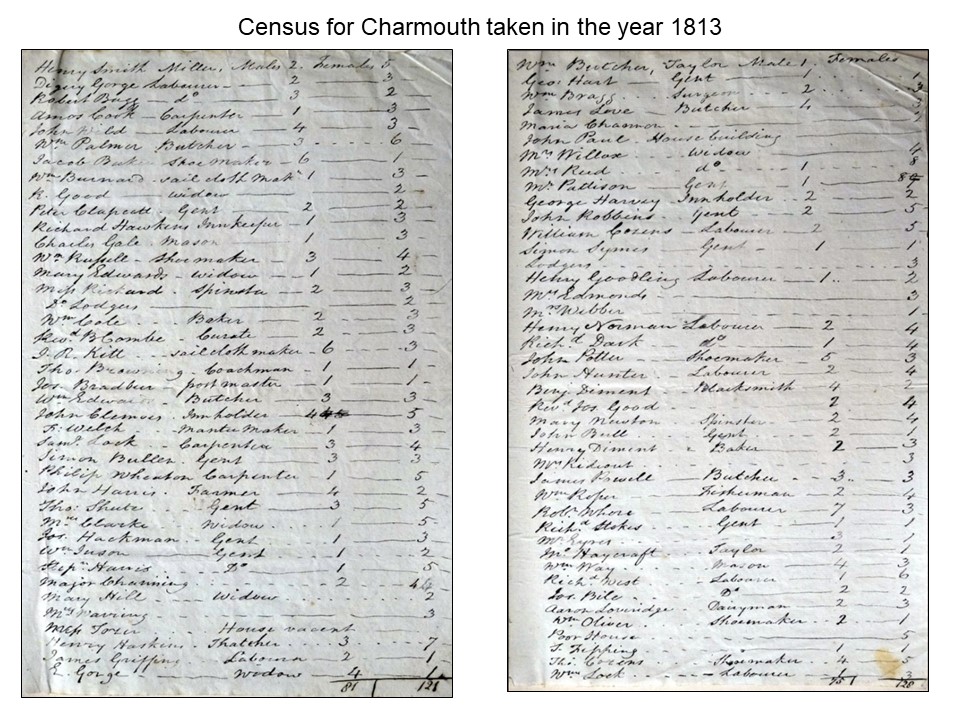 Census for Charmouth taken in the year 1813
Henry Smith Miller, Males 2. Females 5
Digery Gorge Labourer 2 3
Robert Bagg do 3 2
Amos Cook Carpenter 1 3
John Wild Labourer 4 3
Wm Palmer Butcher 3 6
Jacob Shoemaker 6 1
Wm Burnard sail cloth Mak 1 3
K. Good widow 2
Peter Clapcott Gent 2 2
Richard Hawkins Innkeeper 1 3
Charles Gale Mason 1 3
Wm Russell Shoemaker 3 4
Mary Edwards widow 1 2
Miss Richard Spinster 2 3
Do Lodgers 2
Wm Cole Baker 2 3
Revd B Combe Curate 2 3
J. R. Kitt sail cloth maker 6 3
Tho. Browning Coachman 1 1
Jos. Bradbeer post master 1 1
Wm Edwards Butcher 3 3
John Clemois Innholder 4 5
Welch Mantu Maker 1 3
Saml Lock Carpenter 3 4
Simon Bullen Gent 3 3
Philip Wheaton Carpenter 1 5
John Harris Farmer 4 2
Tho: Shute Gent 3 5
Mrs Clarke Widow 5
Jos. Hackman Gent 1 3
Wm Juson Gent 1 2
Harris Do 1 5
Major Channing 2 4
Mary Hill Widow 2
Mrs Warring 3
Miss Tozer House vacent
Henry Haskins Thatcher 3 7
James Griffins Laboura 2 1
E. Gorge Widow 4 1
81 121
Wm Butcher, Taylor Male 1. Females 1
Geo: Hart Gent 1
Wm Bragg Surgeon 2 3
James Love Butcher 4 3
Maria Channon 2
John Paul House building
Mrs Willox widow 4
Mrs Reid do 1 8
Mr Pattison Gent 1
George Harvey Innholder 2 2
John Robbins Gent 2 5
William Cozens Labourer 2 5
Simon Symes Gent 1 1
Lodgers 3
Henry Goodling Labourer 1 2
Mrs Edmonds 3
Mrs Webber 1
Henry Norman Labourer 2 4
Richd Dark do 1 4
John Potter Shoemaker 5 3
John Hunter Labourer 2 4
Benj. Diment Blacksmith 4 2
Revd Jos Good 2 4
Mary Newton Spinster 2 4
John Bull Gent 2 1
Henry Diment Baker 2 3
Mrs Rideout 3
James Powell Butcher 3 3
Wm Roper Fisherman 2 4
Robt Whore Labourer 7 3
Richd Stokes Gent 1 1
Mr Eyres 3 1
Mr Haycraft Taylor 2 1
Wm Way Mason 4 3
Richd West Labourer 1 6
Jos. Bile Do 2 2
Aaron Loveridge Dairyman 2 3
Wm Oliver Shoemaker 2 1
Poor House 5
Tipping 1 1
Tho. Cozens Shoemaker 4 5
Wm Lock Labourer 3
128